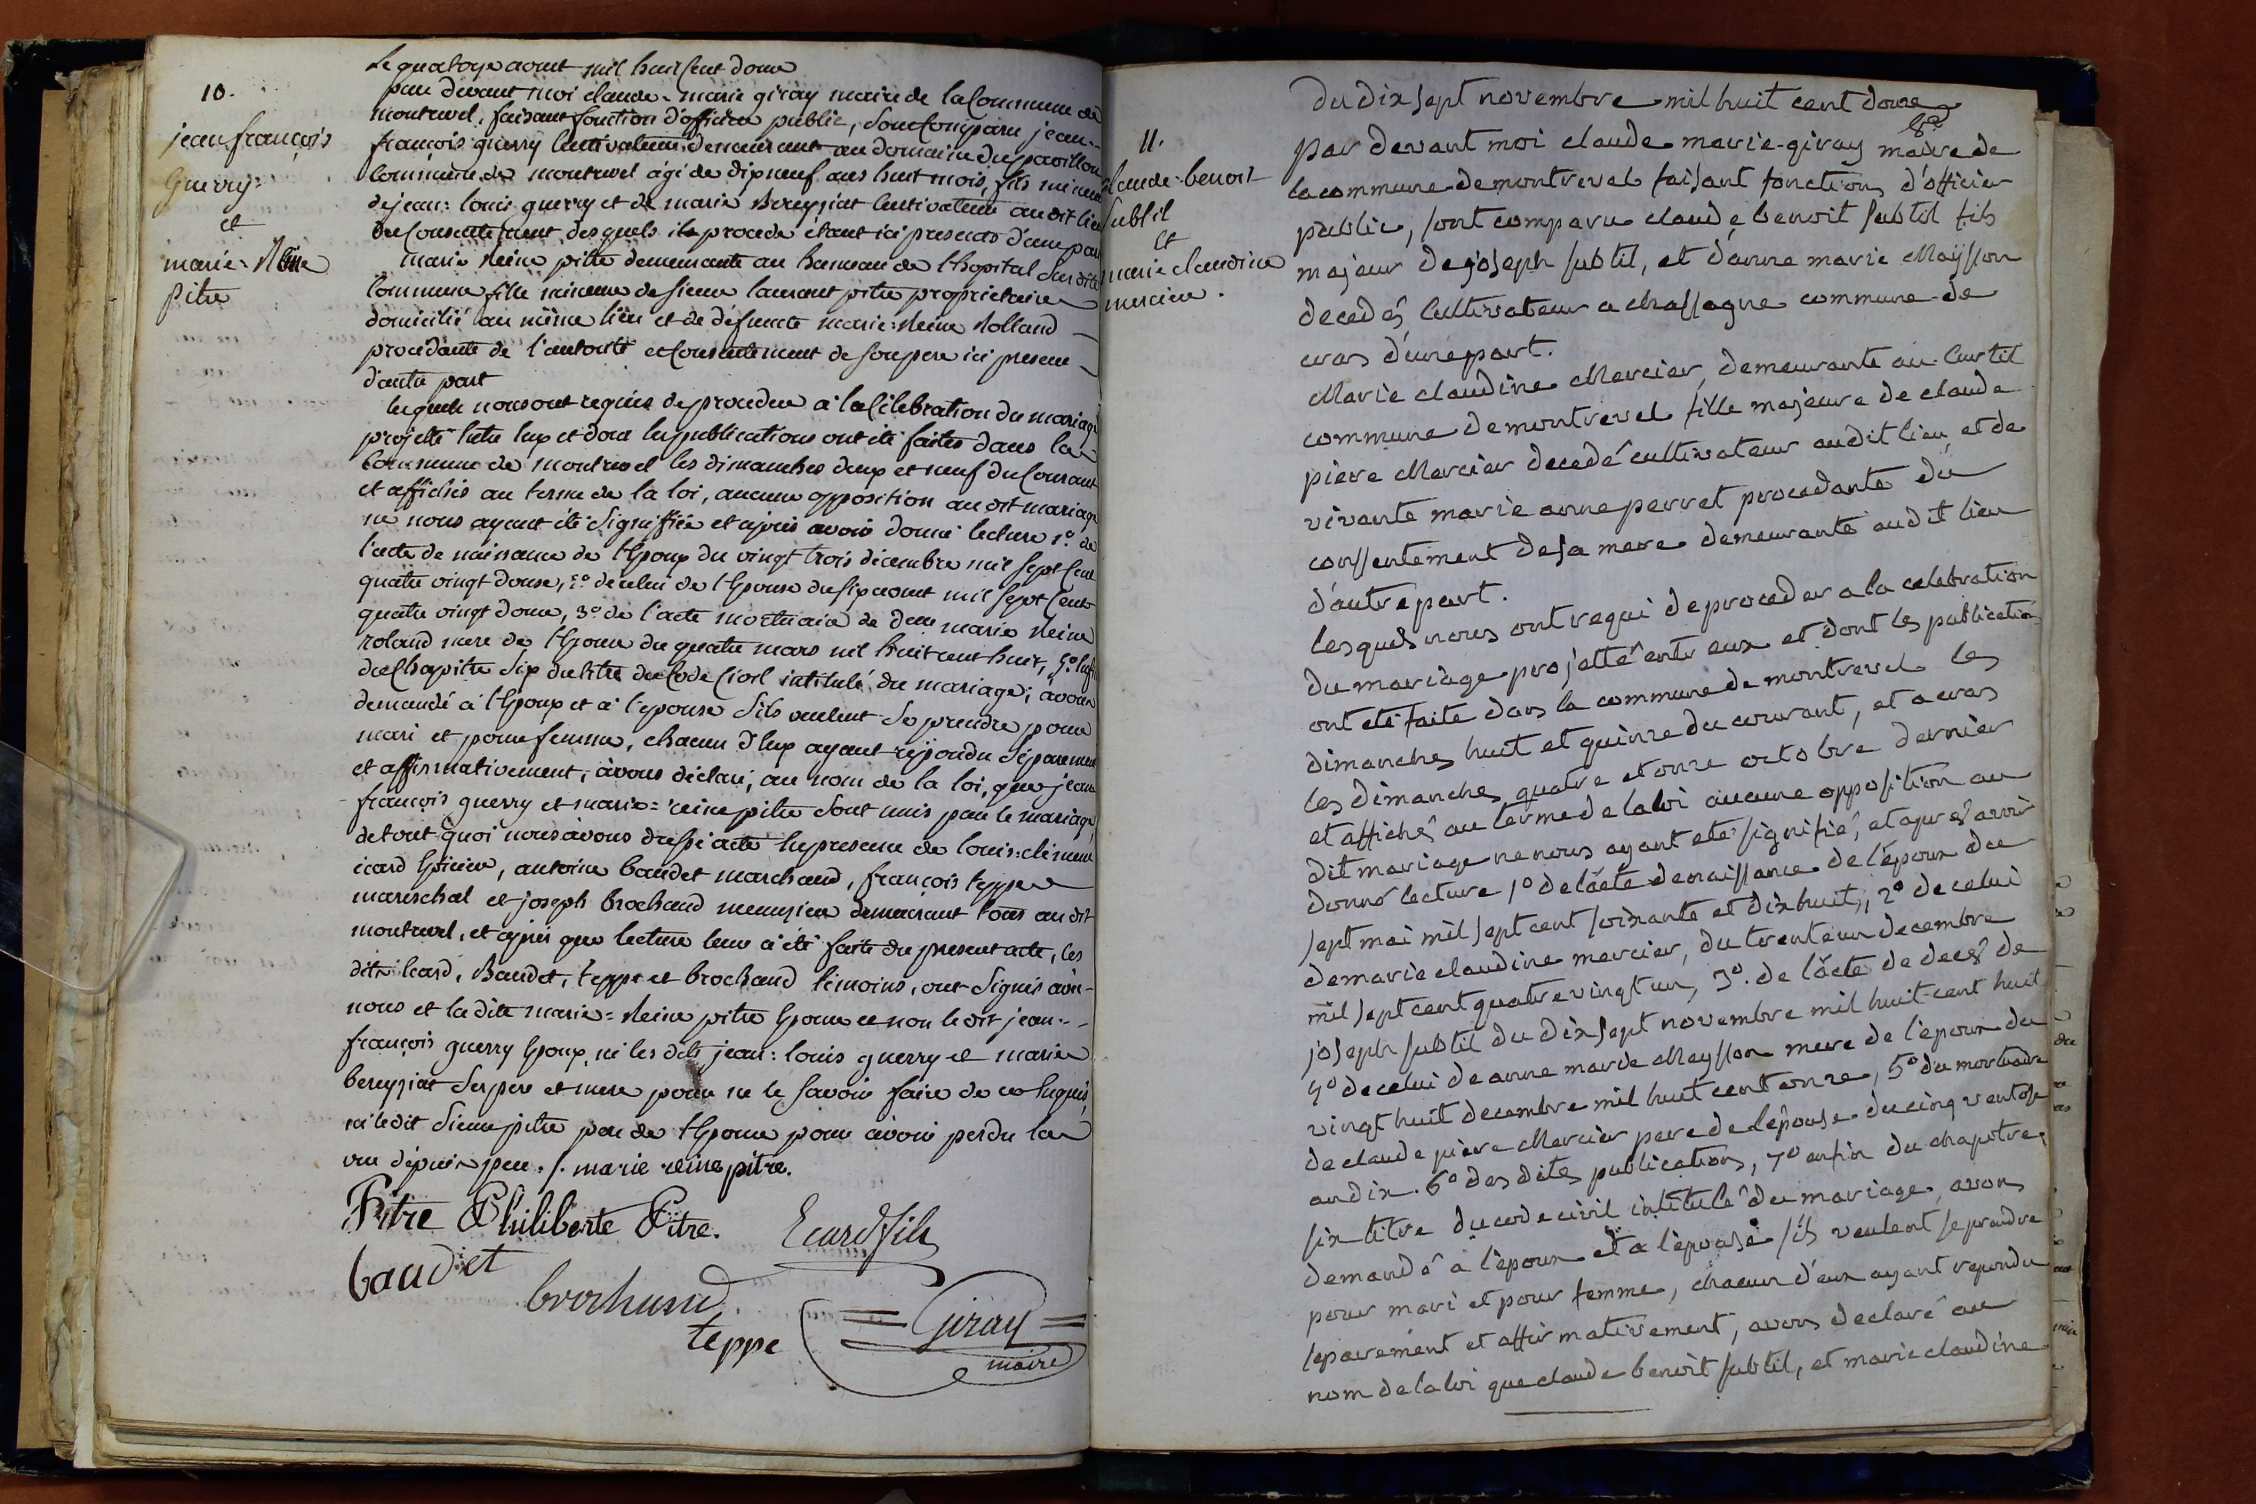 10.
jean françois
Guerry
et
marie Reine
Pitre
Le quatorze aout mil huit cent douze
par devant moi claude-marie giray maire de la Commune de
montrevel, faisant fonction d'officier public, sont Comparu jean-
françois guerry Cultivateur demeurant au domaine du pavillon
Commune de montrevel agé de dix neuf ans huit mois, fils mineur
de jean: louis guerry et de marie Bereyziat Cultivateur au dit lieu
du Consentement desquels il procede étant ici presents d'une part
marie Reine pitre demeurante au hameau de l'hopital Susdite
Commune fille mineure de sieur laurant pitre proprietaire
domicilié au même lieu et de défuncte marie: Reine Rolland
procédante de l'autorité et Consentement de son pere ici present
d'autre part
lesquels nous ont requis de proceder à la Célébration du mariage
projetté Entre Eux et dont les publications ont été faites dans la
Commune de montrevel les dimanches deux et neuf du Courant
et affichés au terme de la loi, aucune opposition au dit mariage
ne nous ayant été Signiffiée et après avoir donné lecture 1º. de
l'acte de naissance de l'Epoux du vingt trois décembre mil Sept Cent
quatre vingt douze, 2º de celui de l'Epouse du six aout mil Sept Cent
quatre vingt douze, 3º de l'acte mortuaire de marie Reine
roland mere de l'Epouse du quatre mars mil huit cent huit,
du Chapitre Six du titre du Code Civil intitulé du mariage; avons
demandé à l'Epoux et à l'epouse S'ils veulent Se prendre pour
mari et pour femme, chacun d'Eux ayant répondu Séparement
et affirmativement; avons déclaré, au nom de la loi, que jean
françois guerry et marie=reine pitre Sont unis par le mariage,
de tout quoi nous avons dressé acte En presence de louis: clément
icard Epicier, antoine baudet marchand, françois teppe
mareschal et joseph brochand menuzier demeurant tous au dit
montrevel, et après que lecture leur a été faite du present acte, les
dits icard, Baudet, teppe et brochand témoins, ont Signés avec
nous et la dite marie=Reine pitre Epouse et non le dit jean-
françois guerry Epoux, ni les dits jean: louis guerry et marie
bereyziat Ses pere et mere pour ne le Savoir faire de ce Enquis,
ni le dit Sieur pitre pere de l'Epouse pour avoir perdu la
vue depuis peu ./. marie reine pitre.
Pitre Philiberte Pitre.
Ecard fils
baudet
brochand
teppe
Giray
maire
11.
claude-benoit
Subtil
et
marie claudine
mercier.
Du Dix sept novembre mil huit cent douze
par devant moi claude marie giray maire de
la commune de montrevel faisant fonctions d'officier
public, sont comparu claude benoit subtil fils
majeur de joseph subtil, et d'anne marie Maysson
decedés, Cultivateur a chassagne commune de
cras d'une part.
Marie claudine Mercier, demeurante au Curtil
commune de montrevel fille majeure de claude
piere Mercier decedé cultivateur audit lieu, et de
vivante marie anne perret procedante du
conssentement de sa mere demeurante audit lieu
d'autre part.
lesquels nous ont requi de proceder a la celebration
du mariage projetté entr eux et dont les publications
ont eté faite dans la commune de montrevel les
dimanches huit et quinze du courant, et a cras
les dimanches quatre et onze octobre dernier
et affichés au terme de la loi aucune opposition au
dit mariage ne nous ayant eté signifié, et apres avoir
donné lecture 1º de l'acte de naissance de l'époux du
sept mai mil sept cent soixante et dix huit, 2º de celui
de marie claudine mercier, du trente un decembre
mil sept cent quatre vingt un, 3º. de l'acte de decès de
joseph subtil du dix sept novembre mil huit cent huit
4º de celui de anne marie Maysson mere de l'epoux du
vingt huit decembre mil huit cent onze, 5º du mortuaire
de claude piere Mercier pere de l'épouse du cinq ventose
an dix. 6º des dites publications, 7º enfin du chapitre
six titre du code civil intitulé du mariage, avons
demandé à l'époux et a l'épouse s'ils veulent se prendre
pour mari et pour femme, chacun d'eux ayant repondu
separement et affirmativement, avons declaré au
nom de la loi que claude benoit subtil, et marie claudine